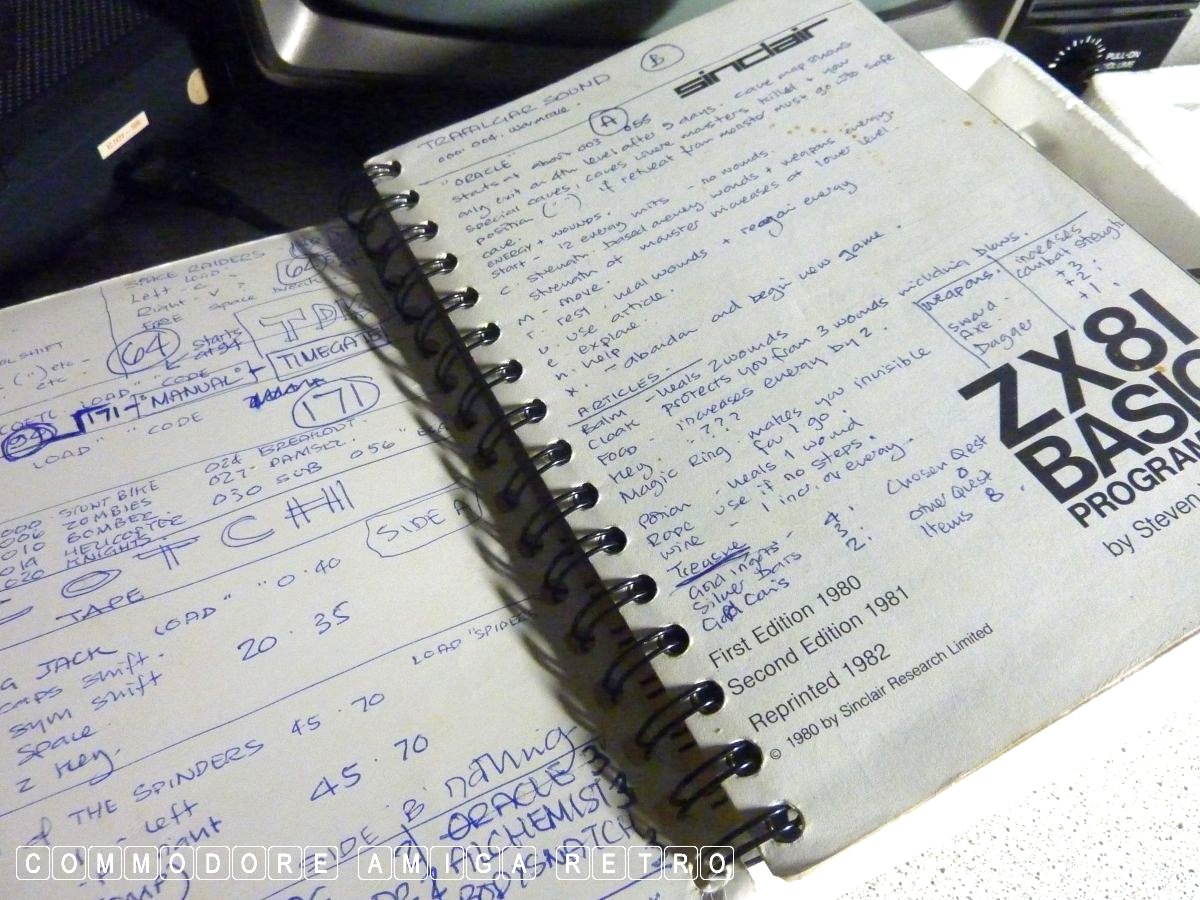 PULL-ON
VOLUME
SPACE RAIDERS
Left LOAD
Right
FIRE Space
64
Starts
at 54
TDK
TIMEGATE
CAPS SHIFT
etc
LOAD " " CODE
171 → MANUAL
LOAD " " CODE
171
STUNT BIKE
ZOMBIES
BOMBER
HELICOPTER
020 KNIGHTS
024 BREAKOUT
027 DAMSEL
030 SUB 056
TAPE
SIDE A
JACK LOAD " " 0.40
caps shift.
sym shift
Space
Z Key.
20 . 35
LOAD "SPIDER
OF THE SPINDERS 45 . 70
left
right
45 . 70
SIDE B nothing
ORACLE
ALCHEMIST
BODYSNATCH
TRAFALGAR SOUND B
sinclair
000 004
A
"ORACLE"
starts at about 003 055
only exit on 4th level after 5 days. cave map shows
special caves, caves where monsters killed + your
position (∵) if retreat from monster must go into safe
cave.
ENERGY + wounds.
start - 12 energy units - no wounds.
C. strength. based on energy. wounds + weapons energy.
strength of monster increases at lower level.
M - move.
r. rest, heal wounds + reagain energy
u. use article.
e. explore.
h. help
x. - abandon and begin new game.
ARTICLES.
Balm - heals 2 wounds
Cloak protects you from 3 wounds including blows.
Food - increases energy by 2.
Key. - ???
Magic Ring makes you invisible
for 1 go.
Potion - heals 1 wound
Rope use if no steps.
Wine - 1 incr. of energy.
weapons. increases
combat strength
sword. +3.
Axe. +2.
Dagger +1.
Treasure
Gold ingots - 4.
Silver Bars 3.
Gold Coins 2.
Chosen Quest
other Quest
Items 8.
ZX81
BASIC
PROGRAM
by Steven
First Edition 1980
Second Edition 1981
Reprinted 1982
© 1980 by Sinclair Research Limited
COMMODORE AMIGA RETRO